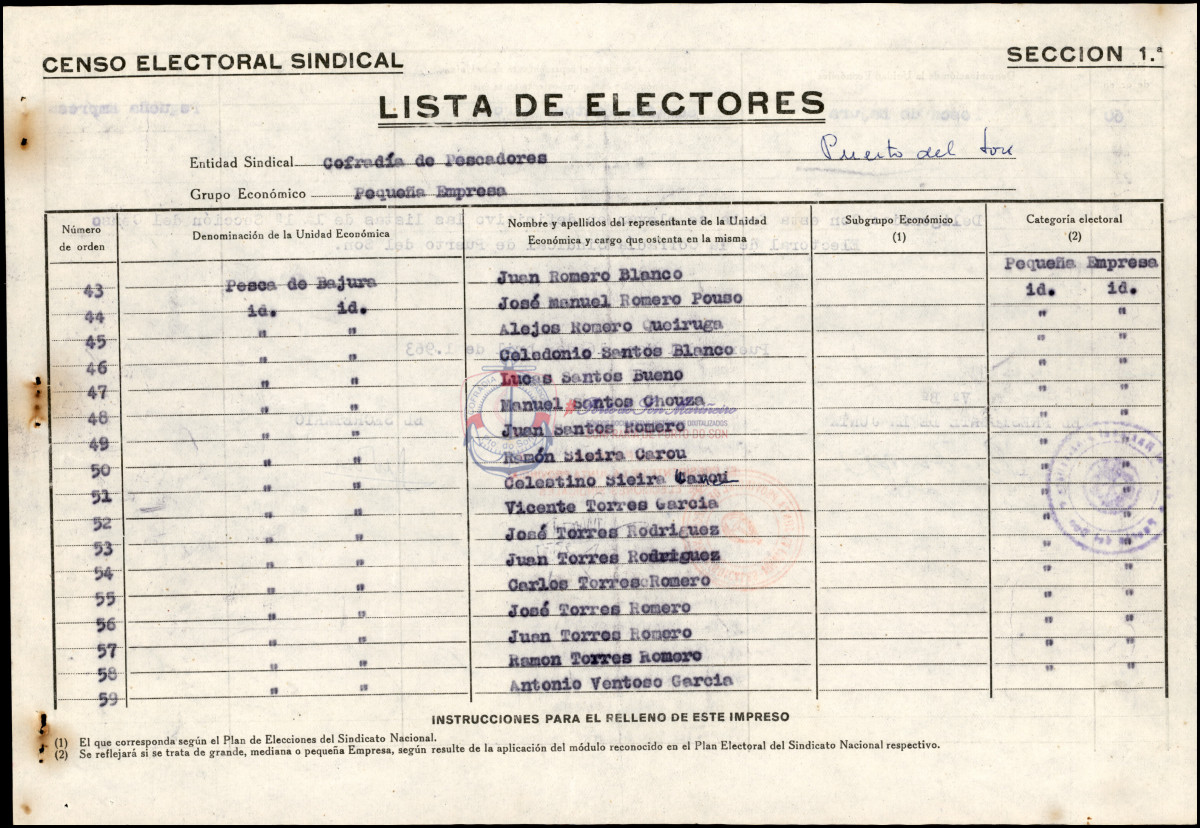 CENSO ELECTORAL SINDICAL
SECCION 1.ª
LISTA DE ELECTORES
Entidad Sindical Cofradía de Pescadores Puerto del Son
Grupo Económico Pequeña Empresa
Número de orden Denominación de la Unidad Económica Nombre y apellidos del representante de la Unidad Económica y cargo que ostenta en la misma Subgrupo Económico (1) Categoría electoral (2)
43 Pesca de Bajura Juan Romero Blanco Pequeña Empresa
44 id. id. José Manuel Romero Pouso id. id.
45 " " Alejos Romero Queiruga " "
46 " " Celedonio Santos Blanco " "
47 " " Lucas Santos Bueno " "
48 " " Manuel Santos Chouza " "
49 " " Juan Santos Romero " "
50 " " Ramón Sieira Carou " "
51 " " Celestino Sieira Carou " "
52 " " Vicente Torres Garcia " "
53 " " José Torres Rodriguez " "
54 " " Juan Torres Rodriguez " "
55 " " Carlos Torres Romero " "
56 " " José Torres Romero " "
57 " " Juan Torres Romero " "
58 " " Ramon Torres Romero " "
59 " " Antonio Ventoso Garcia " "
INSTRUCCIONES PARA EL RELLENO DE ESTE IMPRESO
(1) El que corresponda según el Plan de Elecciones del Sindicato Nacional.
(2) Se reflejará si se trata de grande, mediana o pequeña Empresa, según resulte de la aplicación del módulo reconocido en el Plan Electoral del Sindicato Nacional respectivo.